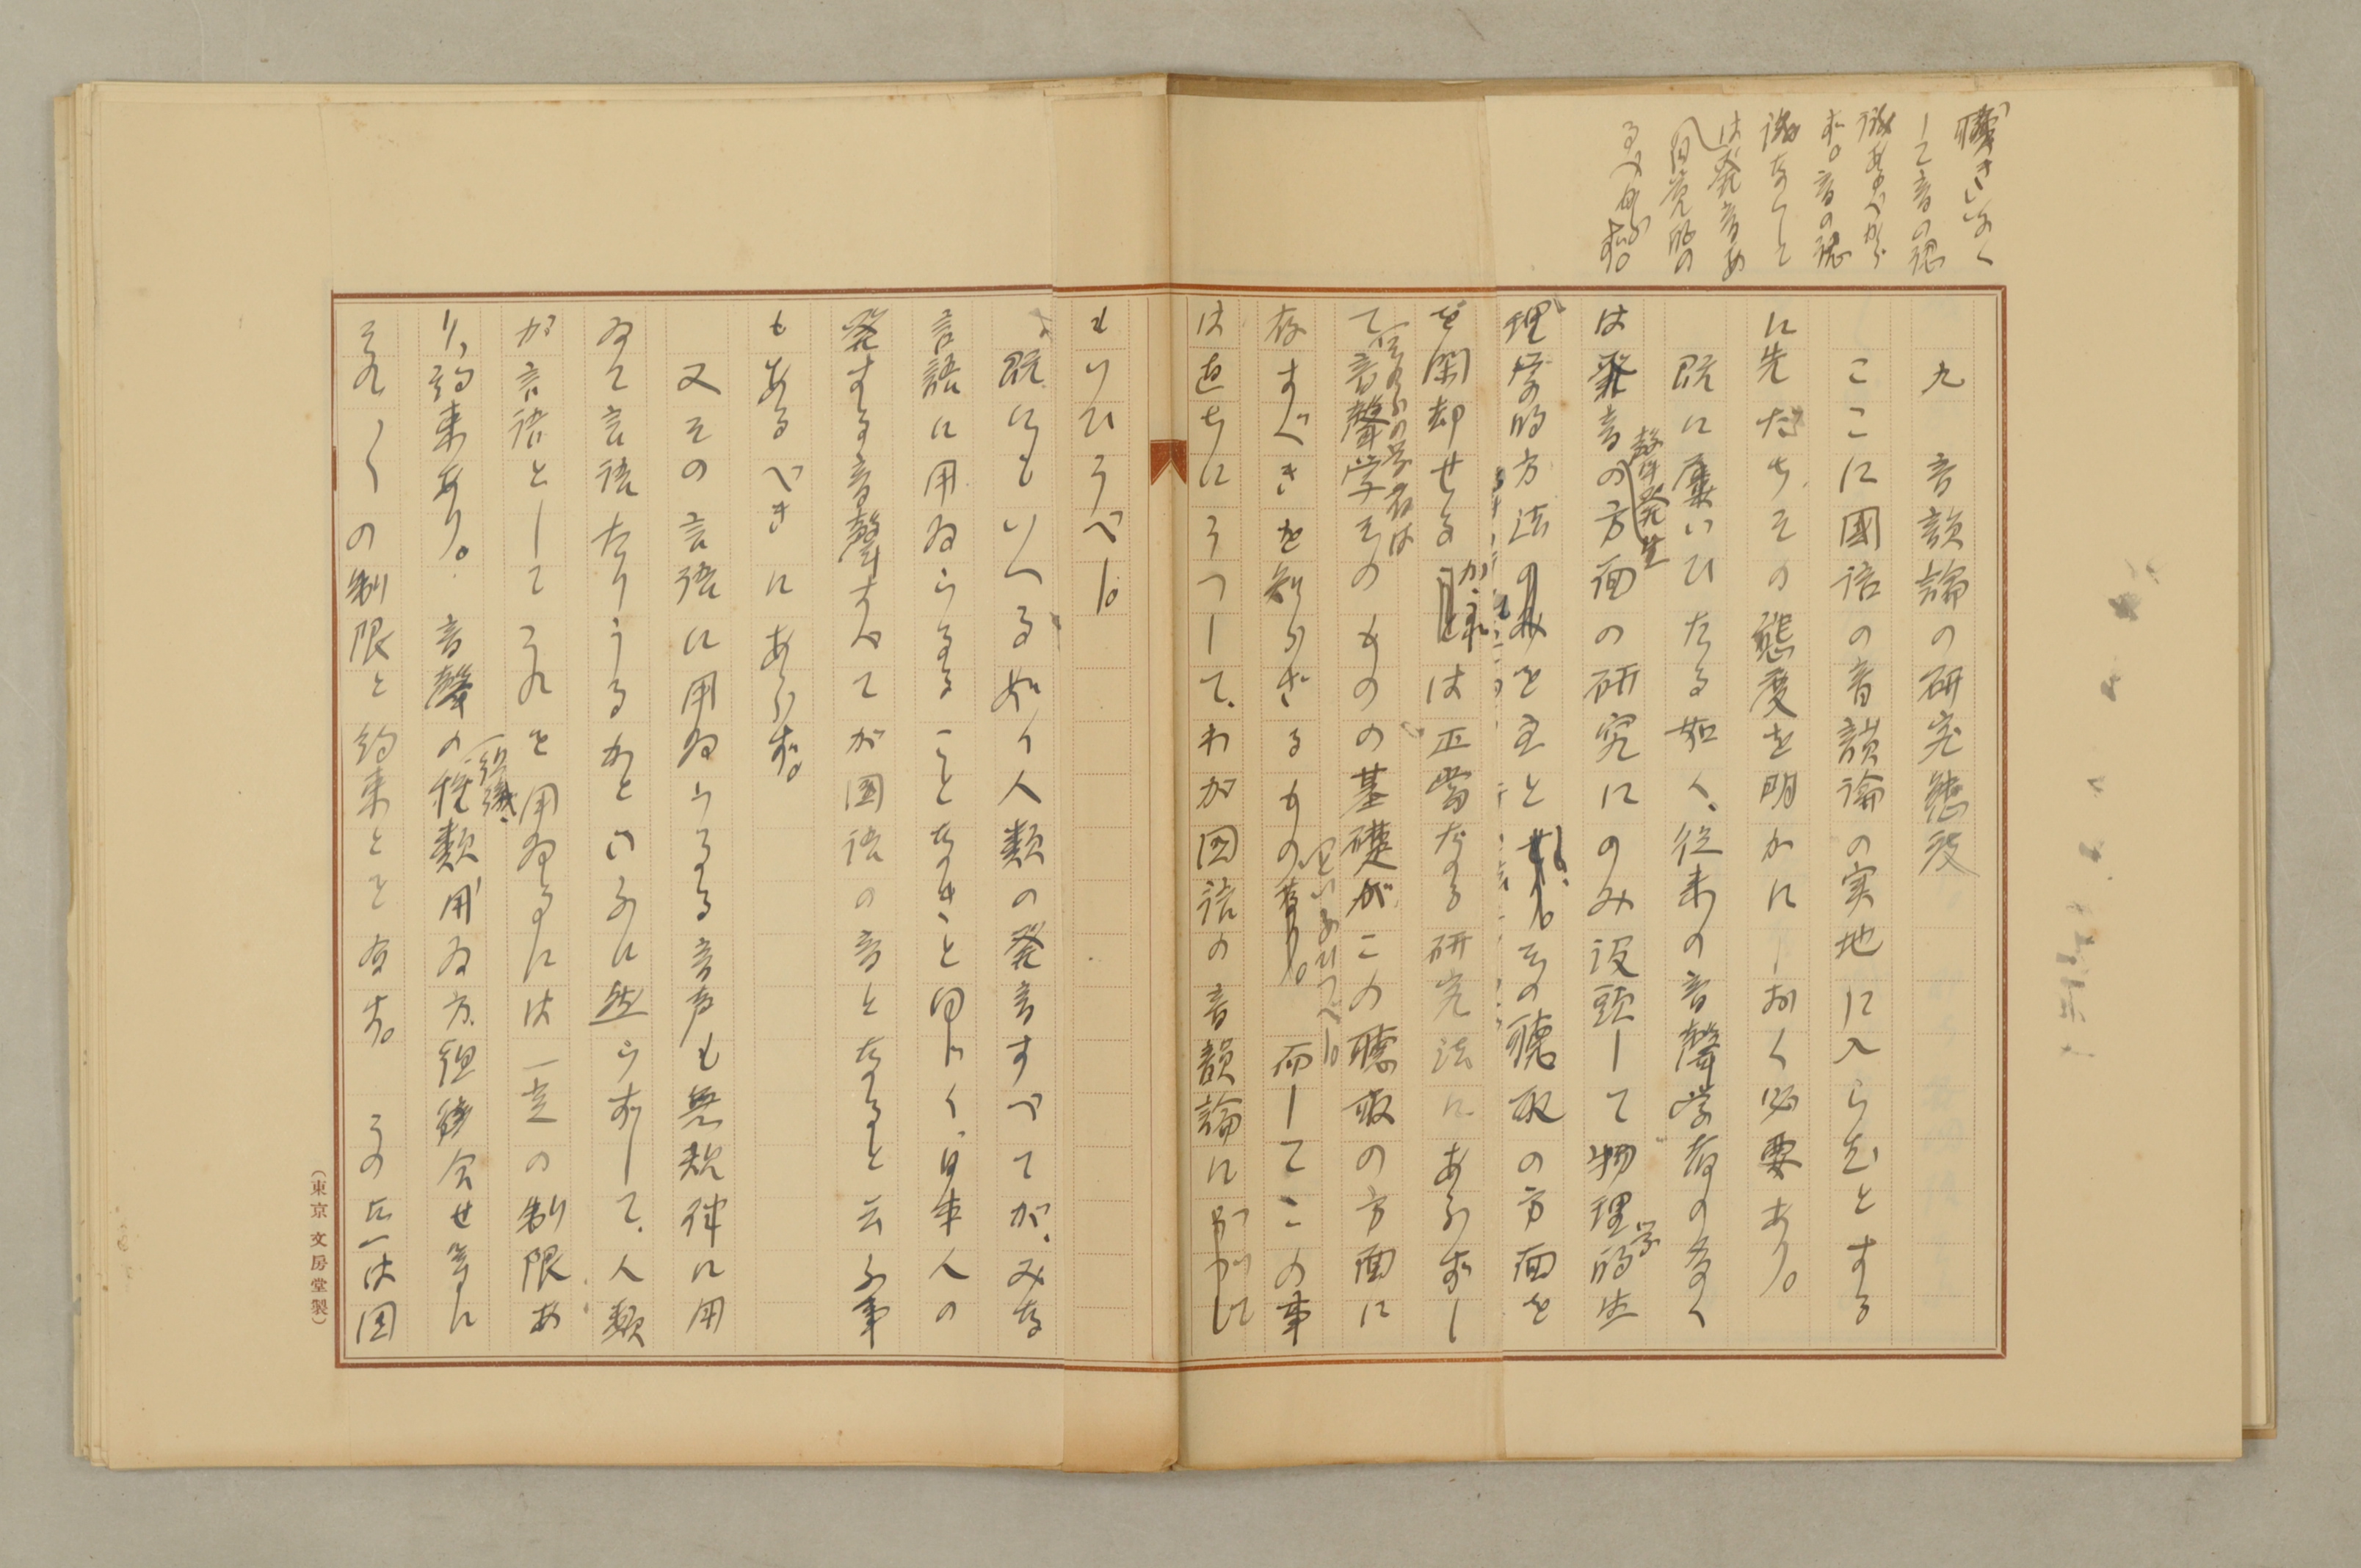 聴きなく
して音の認
識あるべから
ず。音の認
識なくして
は発音あ
るべからず。
九　音韻論の研究態度
ここに國語の音韻論の実地に入らむとする
に先だちその態度を明かにしおく必要あり。
既に屡いひたる如く、従来の音聲学者の多く
は発音の方面の研究にのみ没頭して物理学的生
聲音発生
理学的方法のみを主とし、その聴取の方面を
を閑却せるが、これは正當なる研究法にあらずし
て音聲学そのものの基礎がこの聴取の方面に
これらの学者は
存すべきを知らざるもの
といふをうべし
而してこの事
は直ちにうつして、わが国語の音韻論に
もいひうべし。
既にもいへる如く人類の発音すべてが、みな
言語に用ゐらるることなきこと同じく、日本人の
発する音聲すべてが国語の音となると云ふ事
もあるべきにあらず。
又その言語に用ゐらるる音声も無規律に用
ゐて言語たりうるかといふに然らずして、人類
が言語としてこれを用ゐるには一定の制限あ
り、約束あり。音聲の種類、用ゐ方、組み合せ等に
組織
それ〱の制限と約束とを有す。その点は国
（東京文房堂製）